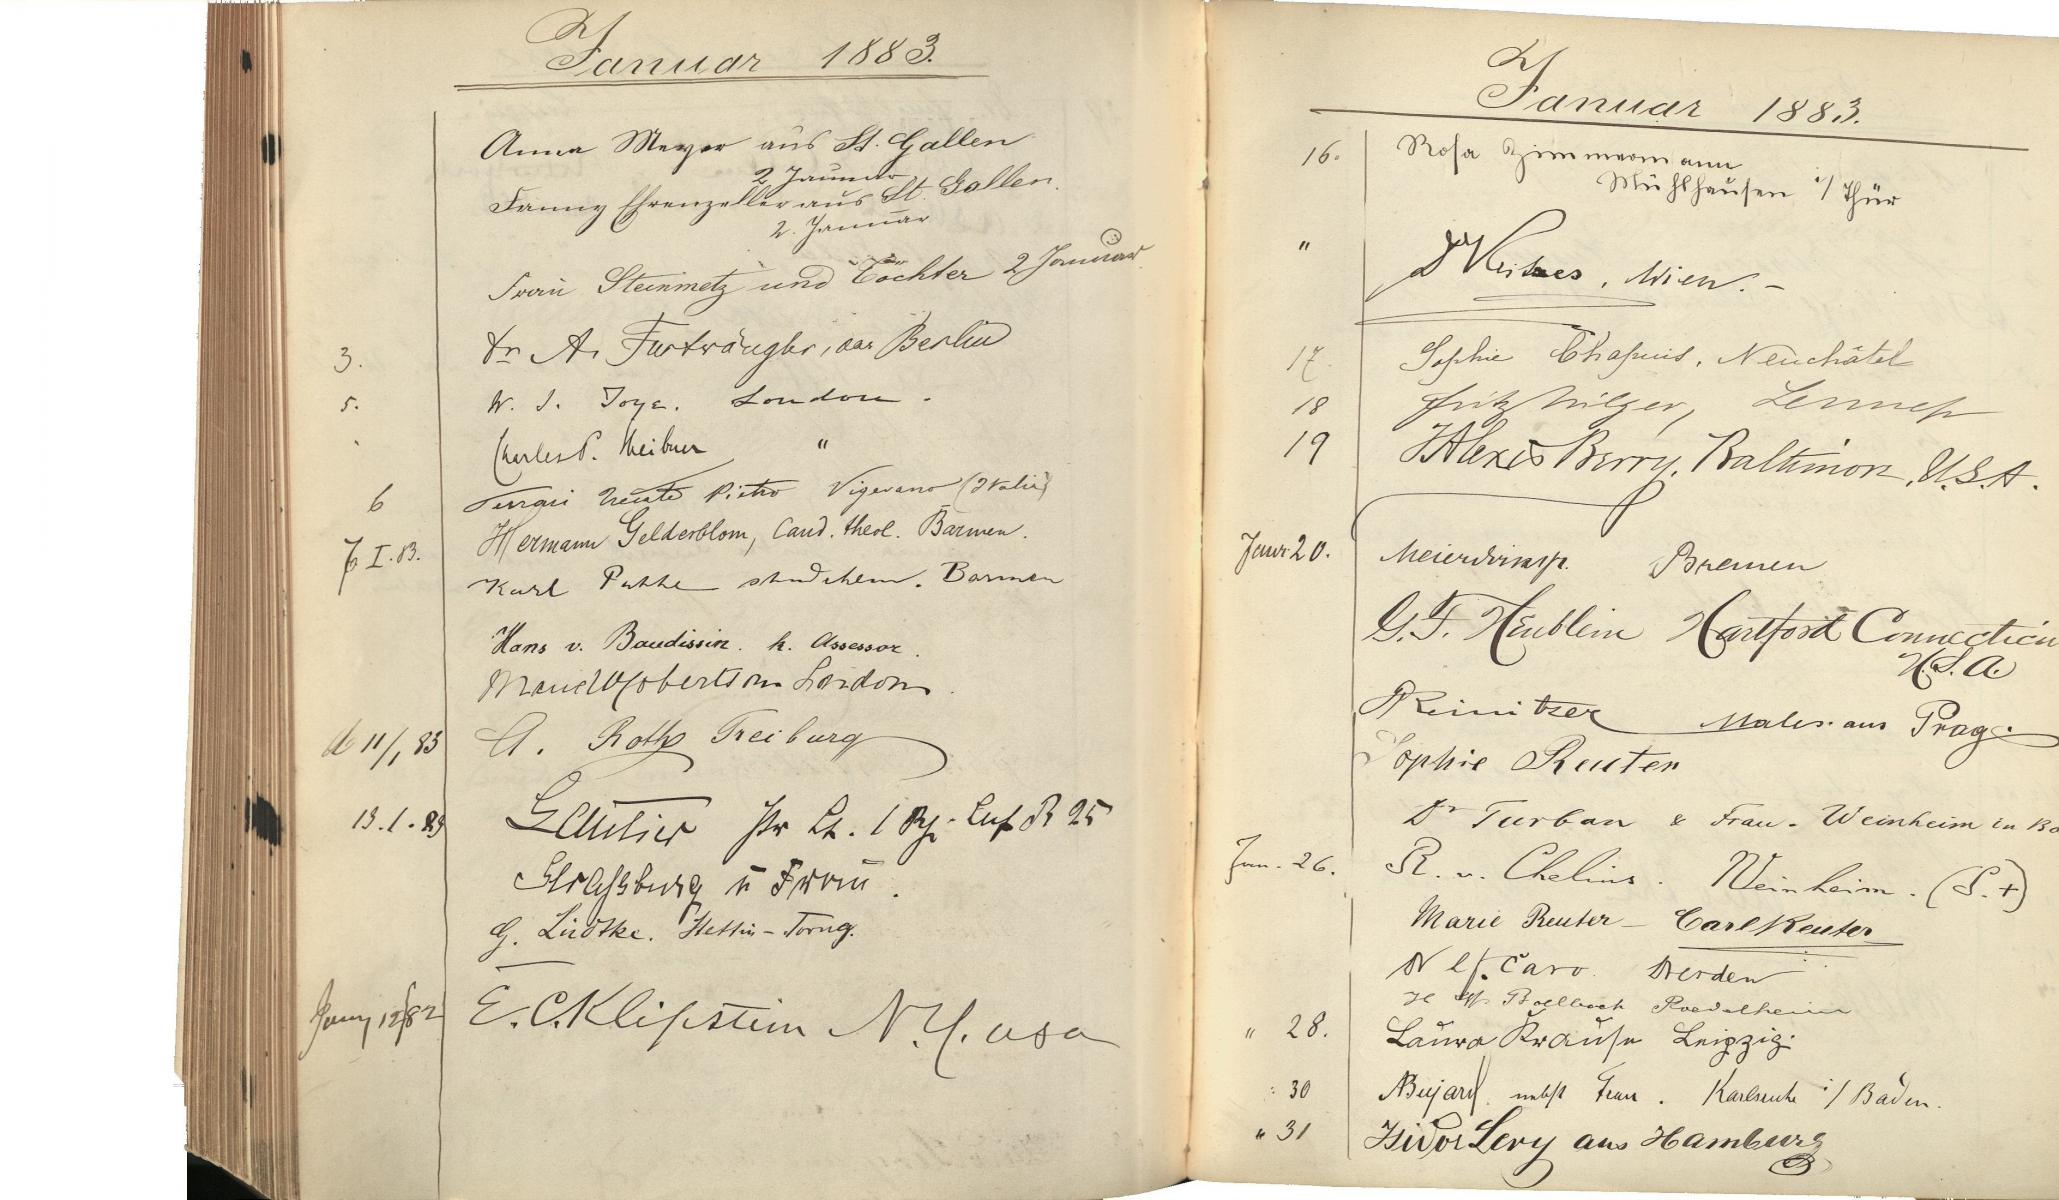 Januar 1883.
Anna Meyer aus St. Gallen
2 Januar
Fanny Ehrenzeller aus St. Gallen.
2. Januar
Frau Steinmetz und Töchter 2 Januar
3. Dr A. Furtwängler, aus Berlin
5. W. J. Joye. London.
Charles P. "
6 Ferrari Pietro Vigevano (Italia)
I. 83. Hermann Gelderblom, Cand. theol. Barmen.
Karl stud chem. Barmen
Hans v. Baudissin. k. Assessor.
Robertson London.
11/1 83 A. Roth Freiburg
13. 1. 83 Pr Lt. R 25
Strassburg u Frau.
G. Lüdtke. Stettin -
12/82 E. C. Klipstein N.Y. USA
Januar 1883.
16. Rosa Zimmermann
Mühlhausen i/ Thür
" Wien. -
17. Sophie Chapuis, Neuchâtel
18 Fritz Hilger, Lennep
19 Alexis Berry, Baltimore, U.S.A.
Janr 20. Bremen
G. F. Heublein Hartford Connecticu
U.S.A.
Reinitzer Maler aus Prag.
Sophie Reuter
Dr Turban & Frau - Weinheim in Ba
Jan. 26. R. v. Chelius. Weinheim. (S. +)
Marie Reuter - Carl Reuter
Caro Dresden
Roedelheim
" 28. Laura Krause Leipzig.
" 30 Bujard nebst Frau. Karlsruhe i/ Baden.
" 31 Isidor Levy aus Hamburg